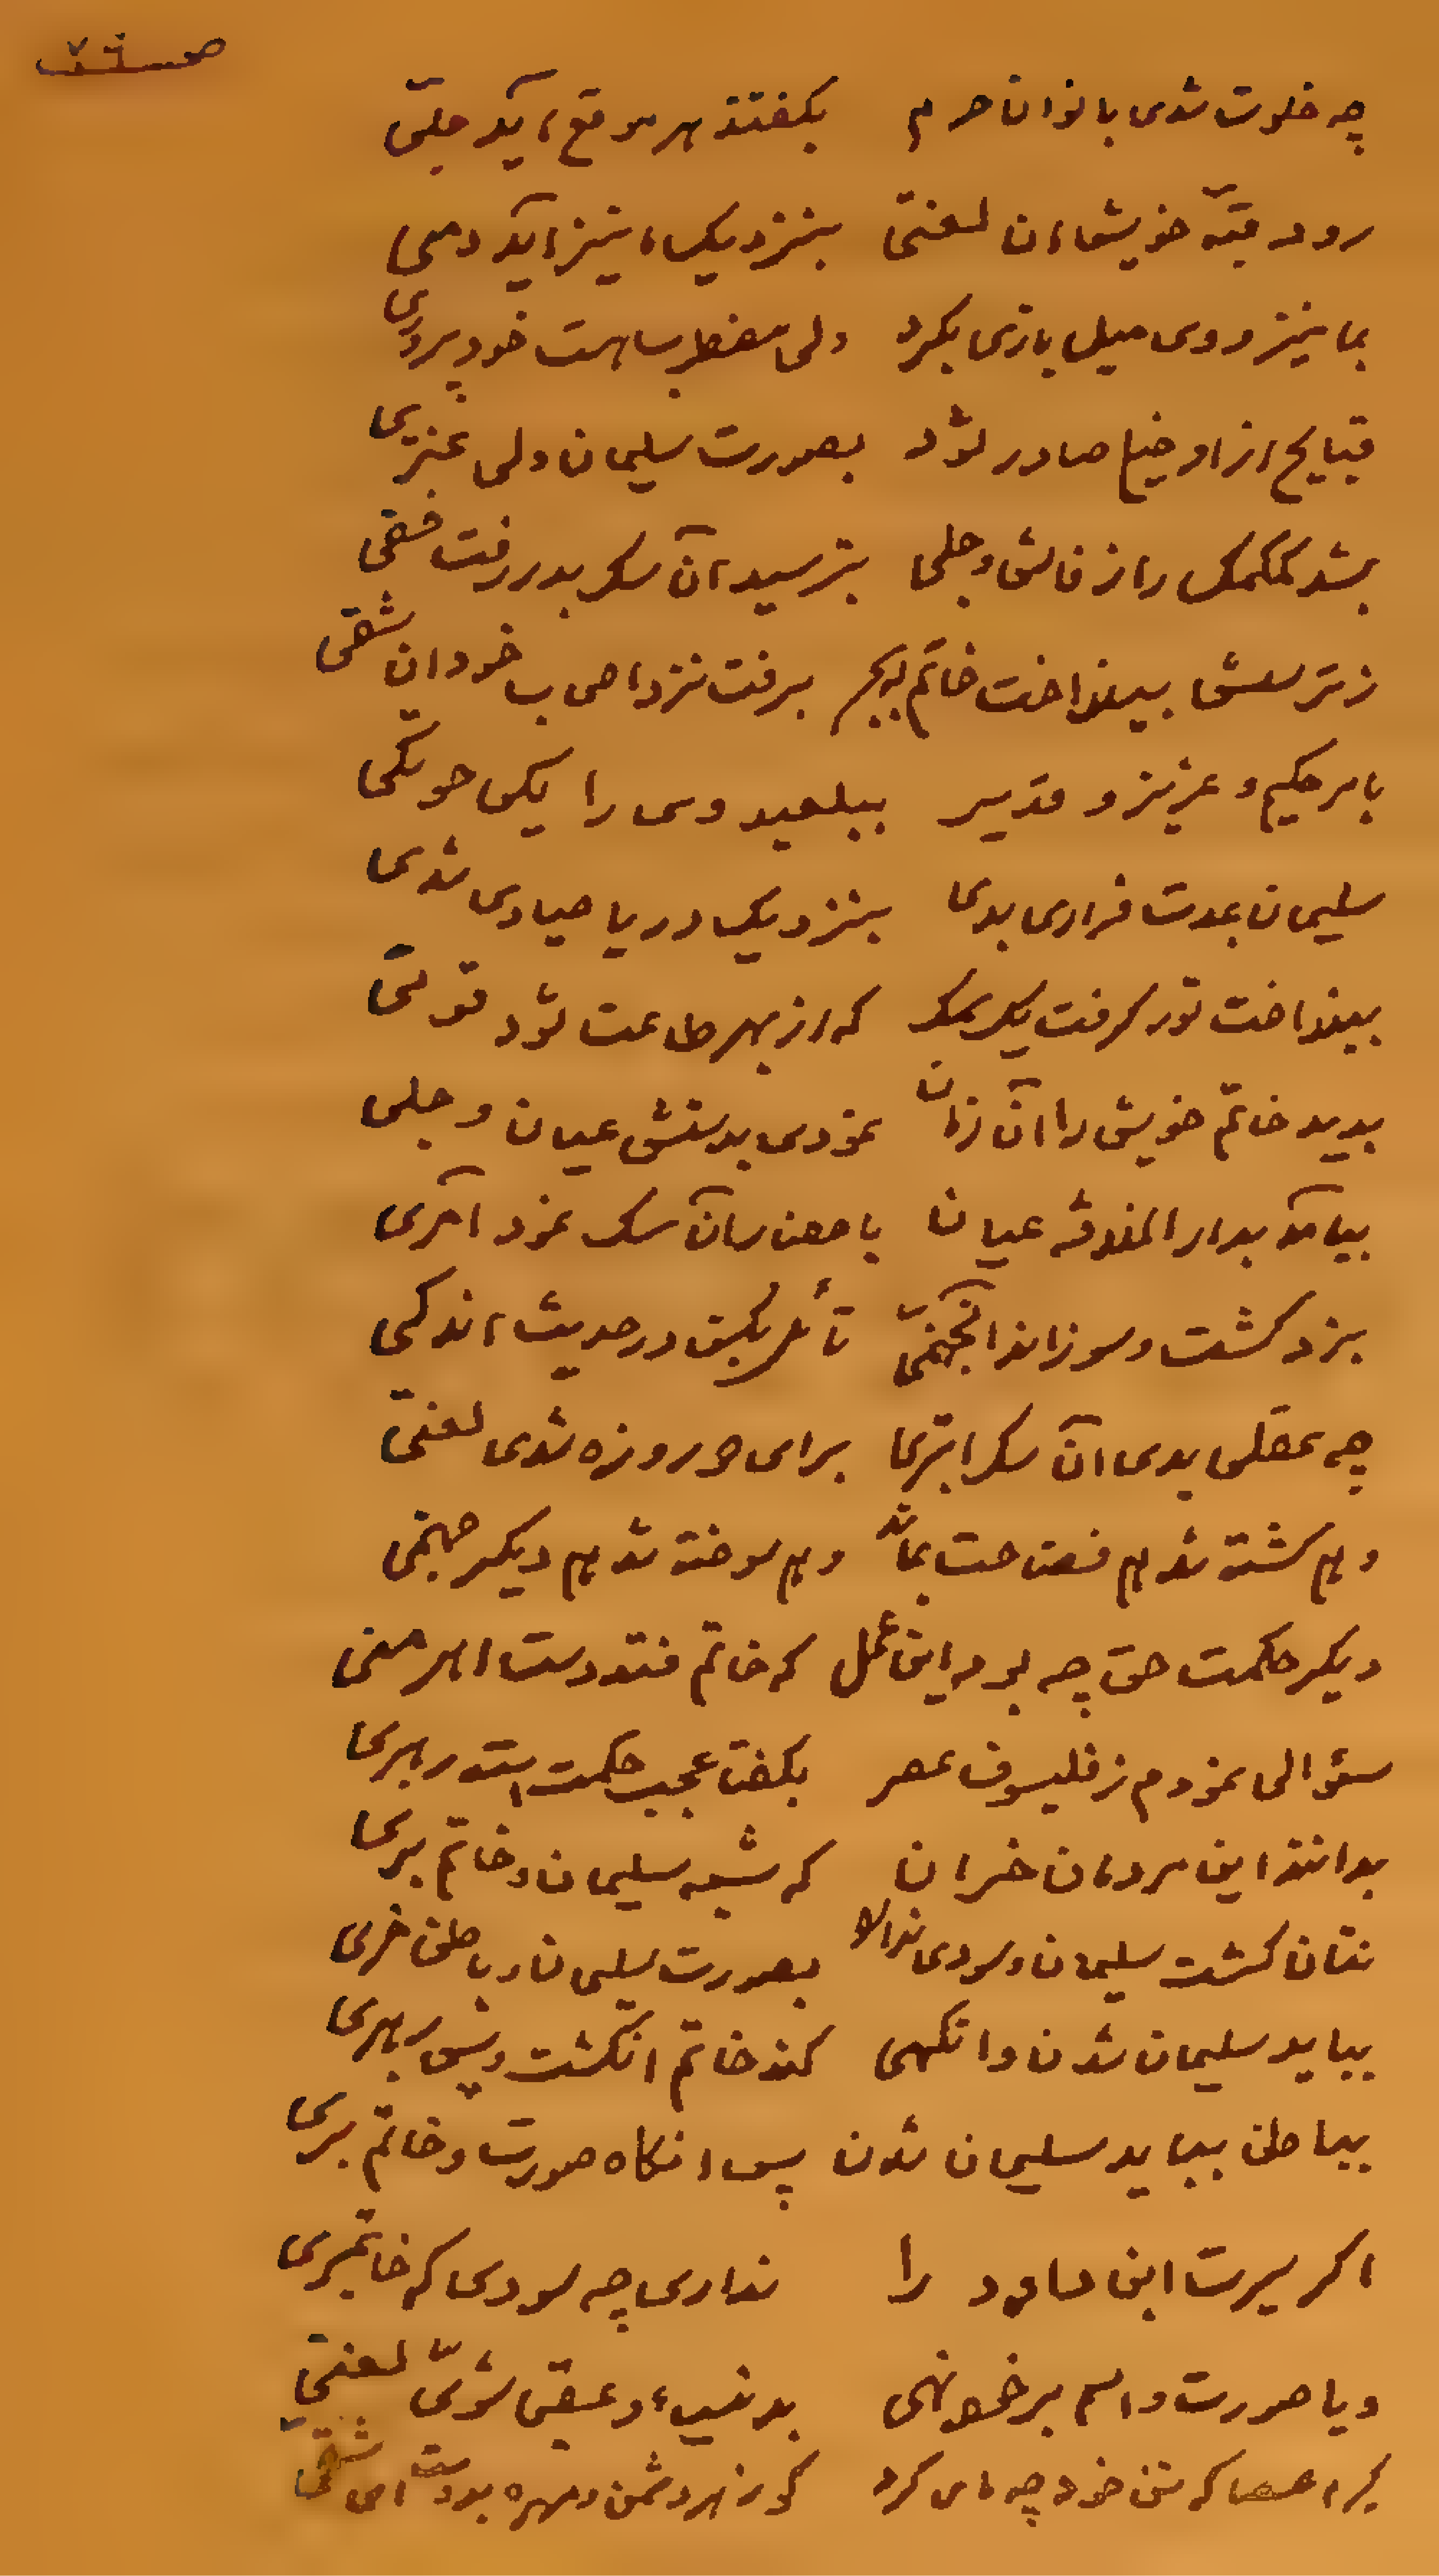 صـ ٧٦
چه خلوت شدی بانوان حرم بکفتند هر موقع آید جلیّ
رود رقبّه خویش ان لعنتی بنزدیک ما نیز آید دمی
بما نیز ووی میل بازی بکرد ولی مضطرب است خود پروری
قبایح از او صادر شد بصورت سلیمان ولی عنتری
بشد کمکمک راز فاش و جلی بترسید آن سک بدر رفت خفی
ز ترسش بینداخت خاتم به بحر برفت نزد اصحاب خود ان شقی
بامر حکیم و عزیز و قدیر ببلعید وی را یکی حوتکی
سلیمان بمدت فراری بدی بنزدیک دریا صیادی شدی
بینداخت تور گرفت یک سمک که از بهر طاعت شود قوتی
بدید خاتم خویش را آن زمان نمودی بدستش عیان و جلی
بیامد بدار الخلافه عیان باحضار آن سک نمود آمری
بزد کشت و سوزاند انجهنمیّ تأمل بکن در حدیث اندکی
چه عقلی بدی آن سک ابتری برای دو روزه شدی لعنتی
و هم کشته شد هم فضاحت بماند و هم سوخته شد هم دیکر جهنمی
دیکر حکمت حق چه بود این عمل که خاتم فتد دست اهرمنی
سؤالی نمودم ز فلیسوف عصر بکفت عجب حکمت است رهبری
بدانند این مردمان خران که شبه سلیمان و خاتم بری
نتان کشت سلیمان و سودی ندارد بصورت سلیمان و باطن خری
بباید سلیمان شدن وانکهی کند خاتم انکشت و پس رهبری
بباطن بباید سلیمان شدن پس انکاه صورت و خاتم بری
اکر سیرت ابن داود را نداری چه سودی که خاتم بری
و یا صورت و اسم بر خود نهی بدنیا و عقبی شویّ لعنتیّ
که خود چه مای کرد که زهر دشمن و مهره بدوست ای شقی